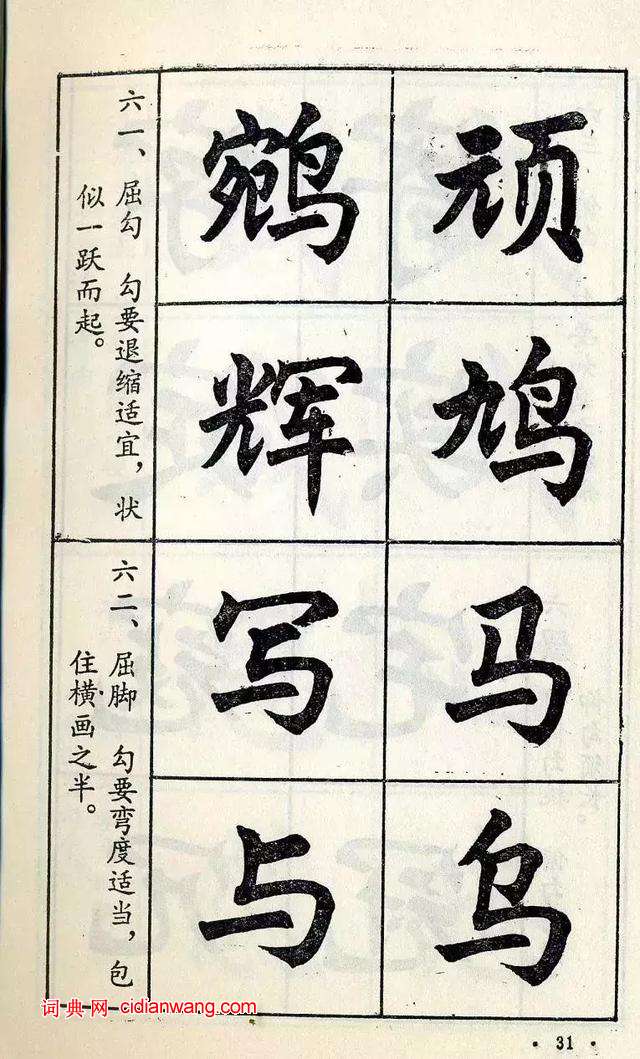 顽鸠
鹓辉
六一、屈勾 勾要退缩适宜，状
似一跃而起。
马乌
写与
六二、屈脚 勾要弯度适当，包
住横画之半。
词典网 cidianwang.com
·31·